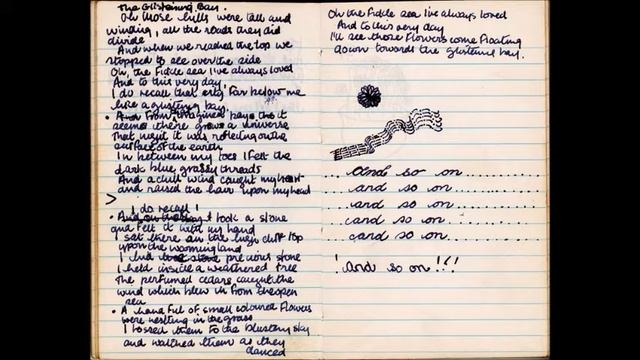 The Glistening Bay.
Oh those hills were tall and
winding, all the roads they did
divide
And when we reached the top we
stopped to see over the side
Oh, the fickle sea I've always loved
And to this very day
I do recall that city far below me
like a glistening bay.
• And from imagined bays tho it
seemed there grew a universe
That night it was reflecting on the
surface of the earth
In between my toes I felt the
dark blue, grassy threads
And a chill wind caught my heart
and raised the hair upon my head
> I do recall!
• I took a stone
and felt it with my hand
I sat there on the high cliff top
upon the moorning land
I had precious stone
I held inside a weathered tree
The perfumed cedars caught the
wind which blew in from the open
sea
• A hand full of small coloured flowers
were nestling in the grass
I tossed them to the blustery sky
and watched them as they
danced
Oh the fickle sea I've always loved
And to this very day
I'll see those flowers come floating
down towards the glistening bay.
... and so on ..........
... and so on ..........
... and so on ..........
... and so on ..........
... and so on ..........
! and so on !!!